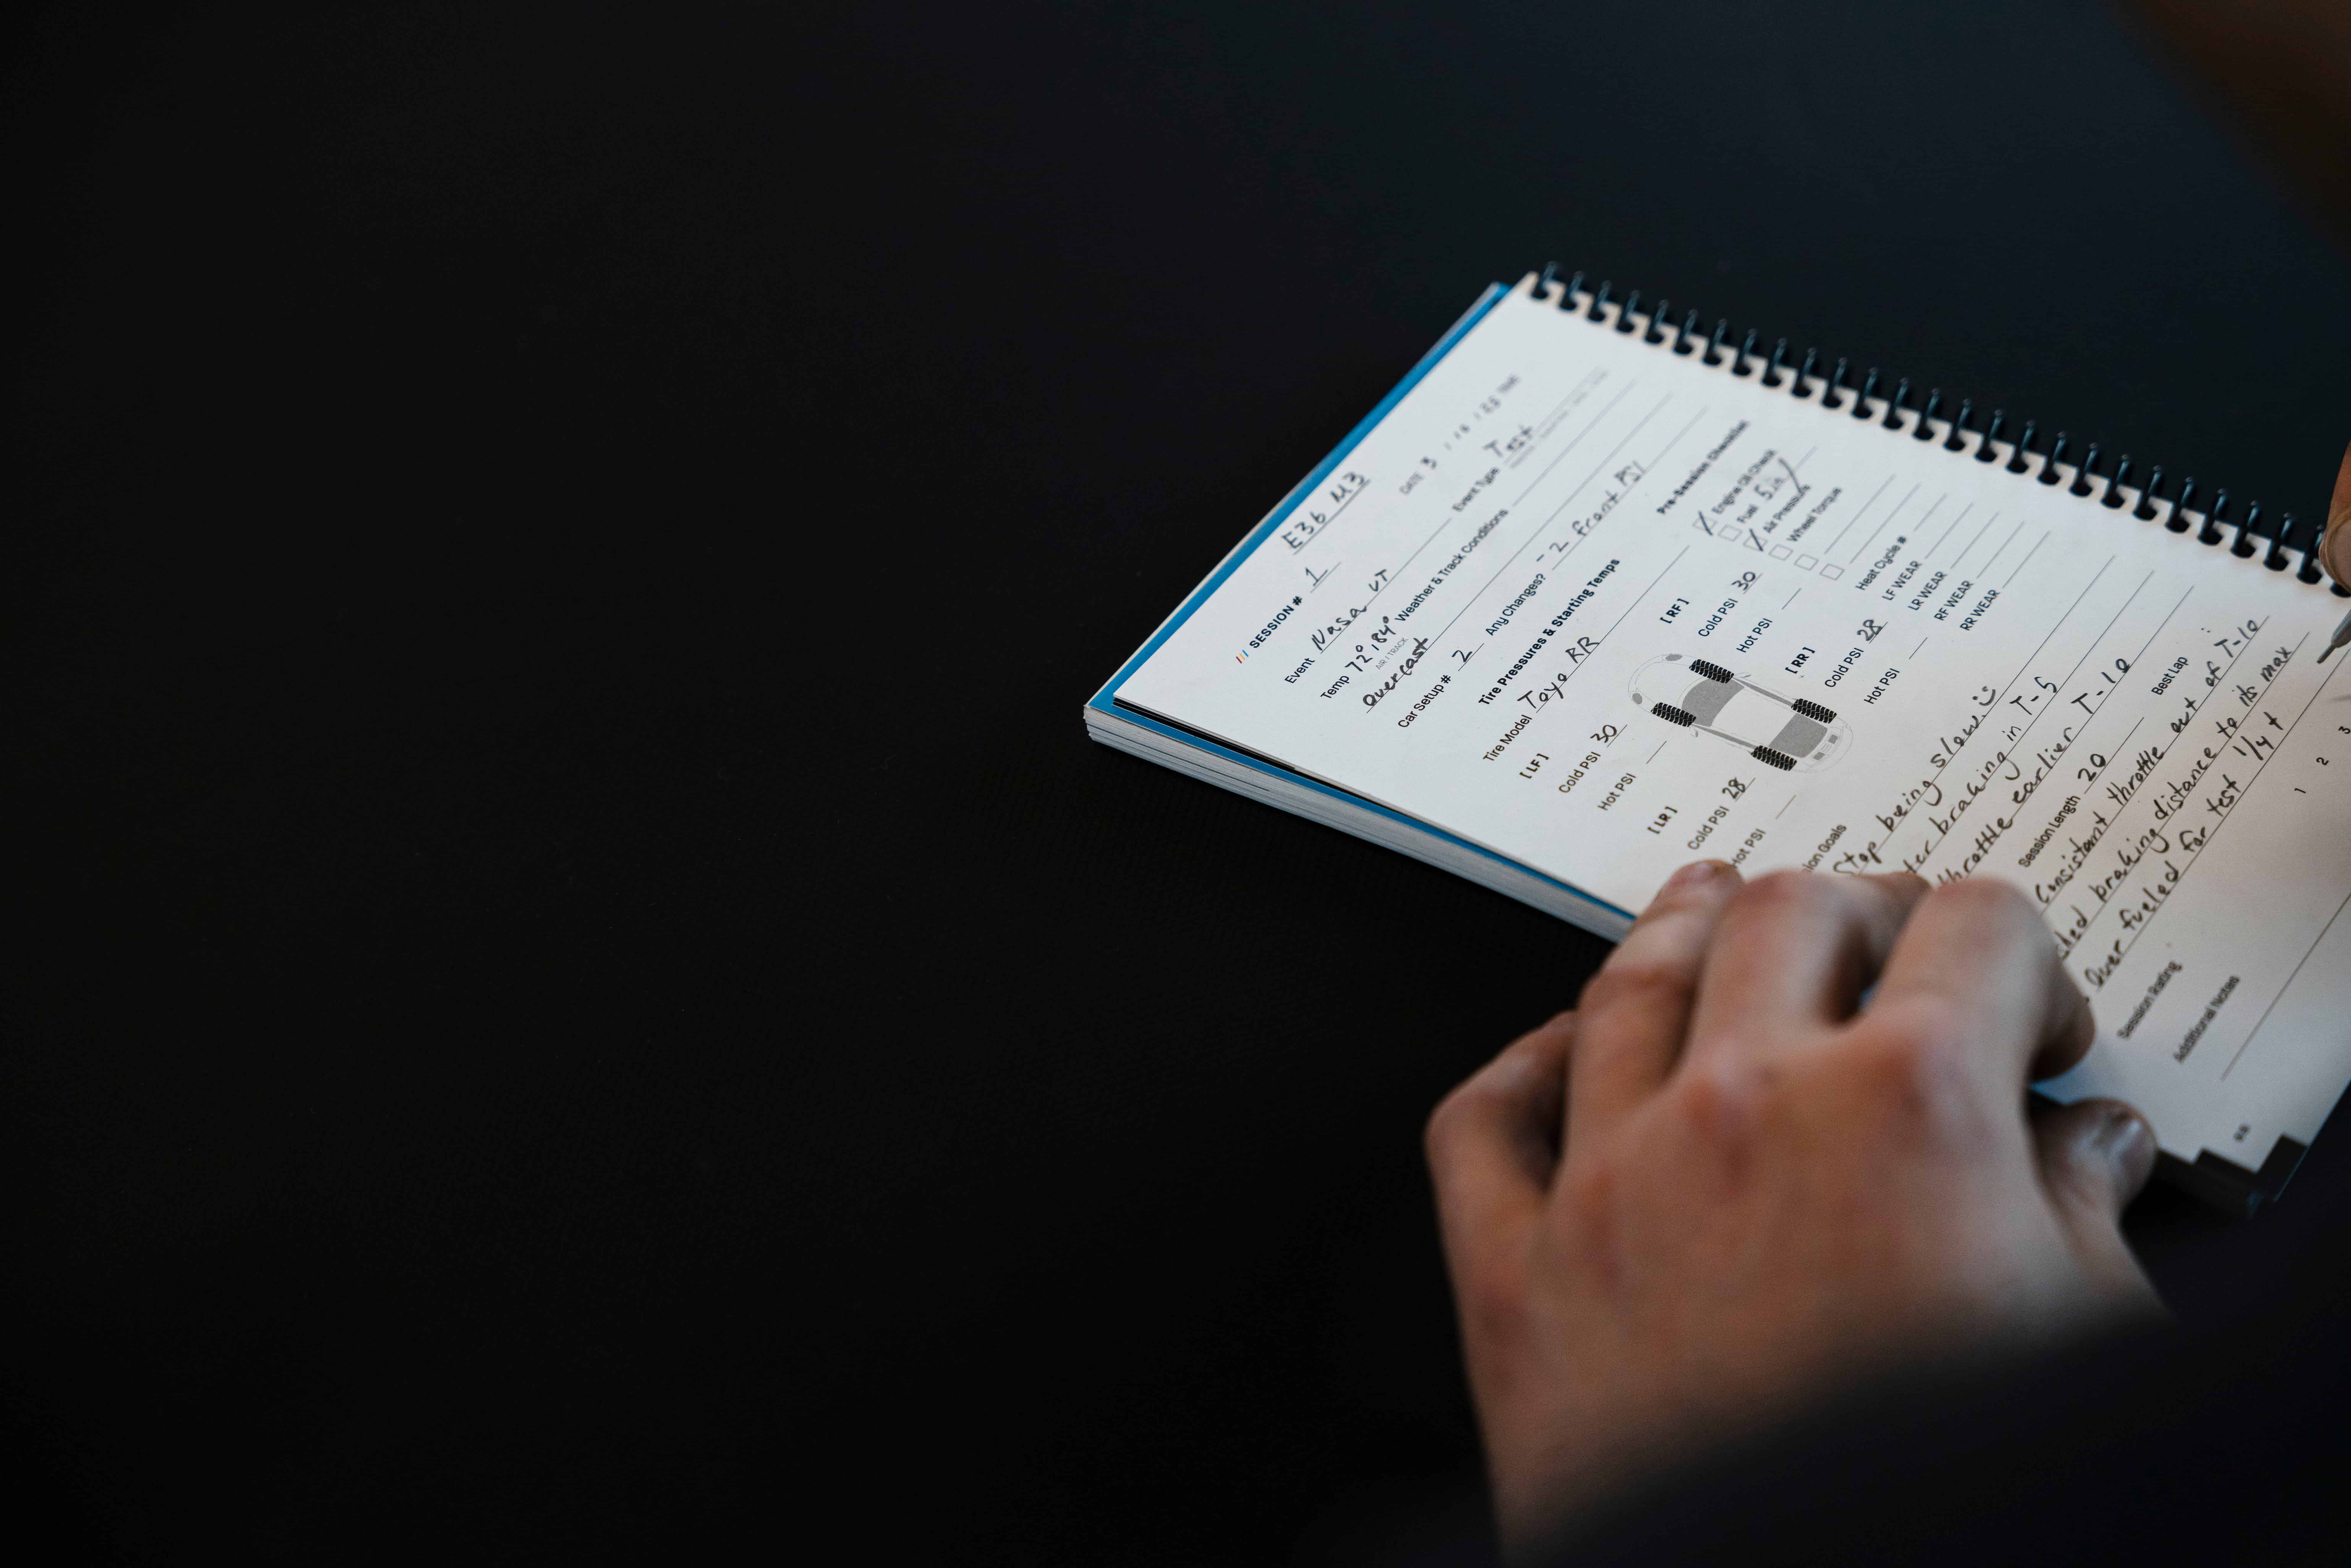 E36 M3
/// SESSION # 1
DATE 3
Event Nasa VT Event Type Test
Temp 72° / 84° Weather & Track Conditions
AIR / TRACK
Overcast
Car Setup # 2 Any Changes? - 2 front PSI
Tire Pressures & Starting Temps
Tire Model Toyo RR
[ LF ]
Cold PSI 30
Hot PSI
[ RF ]
Cold PSI 30
Hot PSI
[ LR ]
Cold PSI 28
Hot PSI
[ RR ]
Cold PSI 28
Hot PSI
Pre-Session Checklist
Engine Oil Check
Fuel
Air Pressure
Wheel Torque
Heat Cycle #
LF WEAR
LR WEAR
RF WEAR
RR WEAR
Goals
Stop being slow :)
braking in T-5
throttle earlier T-10
Session Length 20 Best Lap
Consistant throttle out of T-10
braking distance to its max
Over fueled for test 1/4 t
Session Rating 1 2 3
Additional Notes